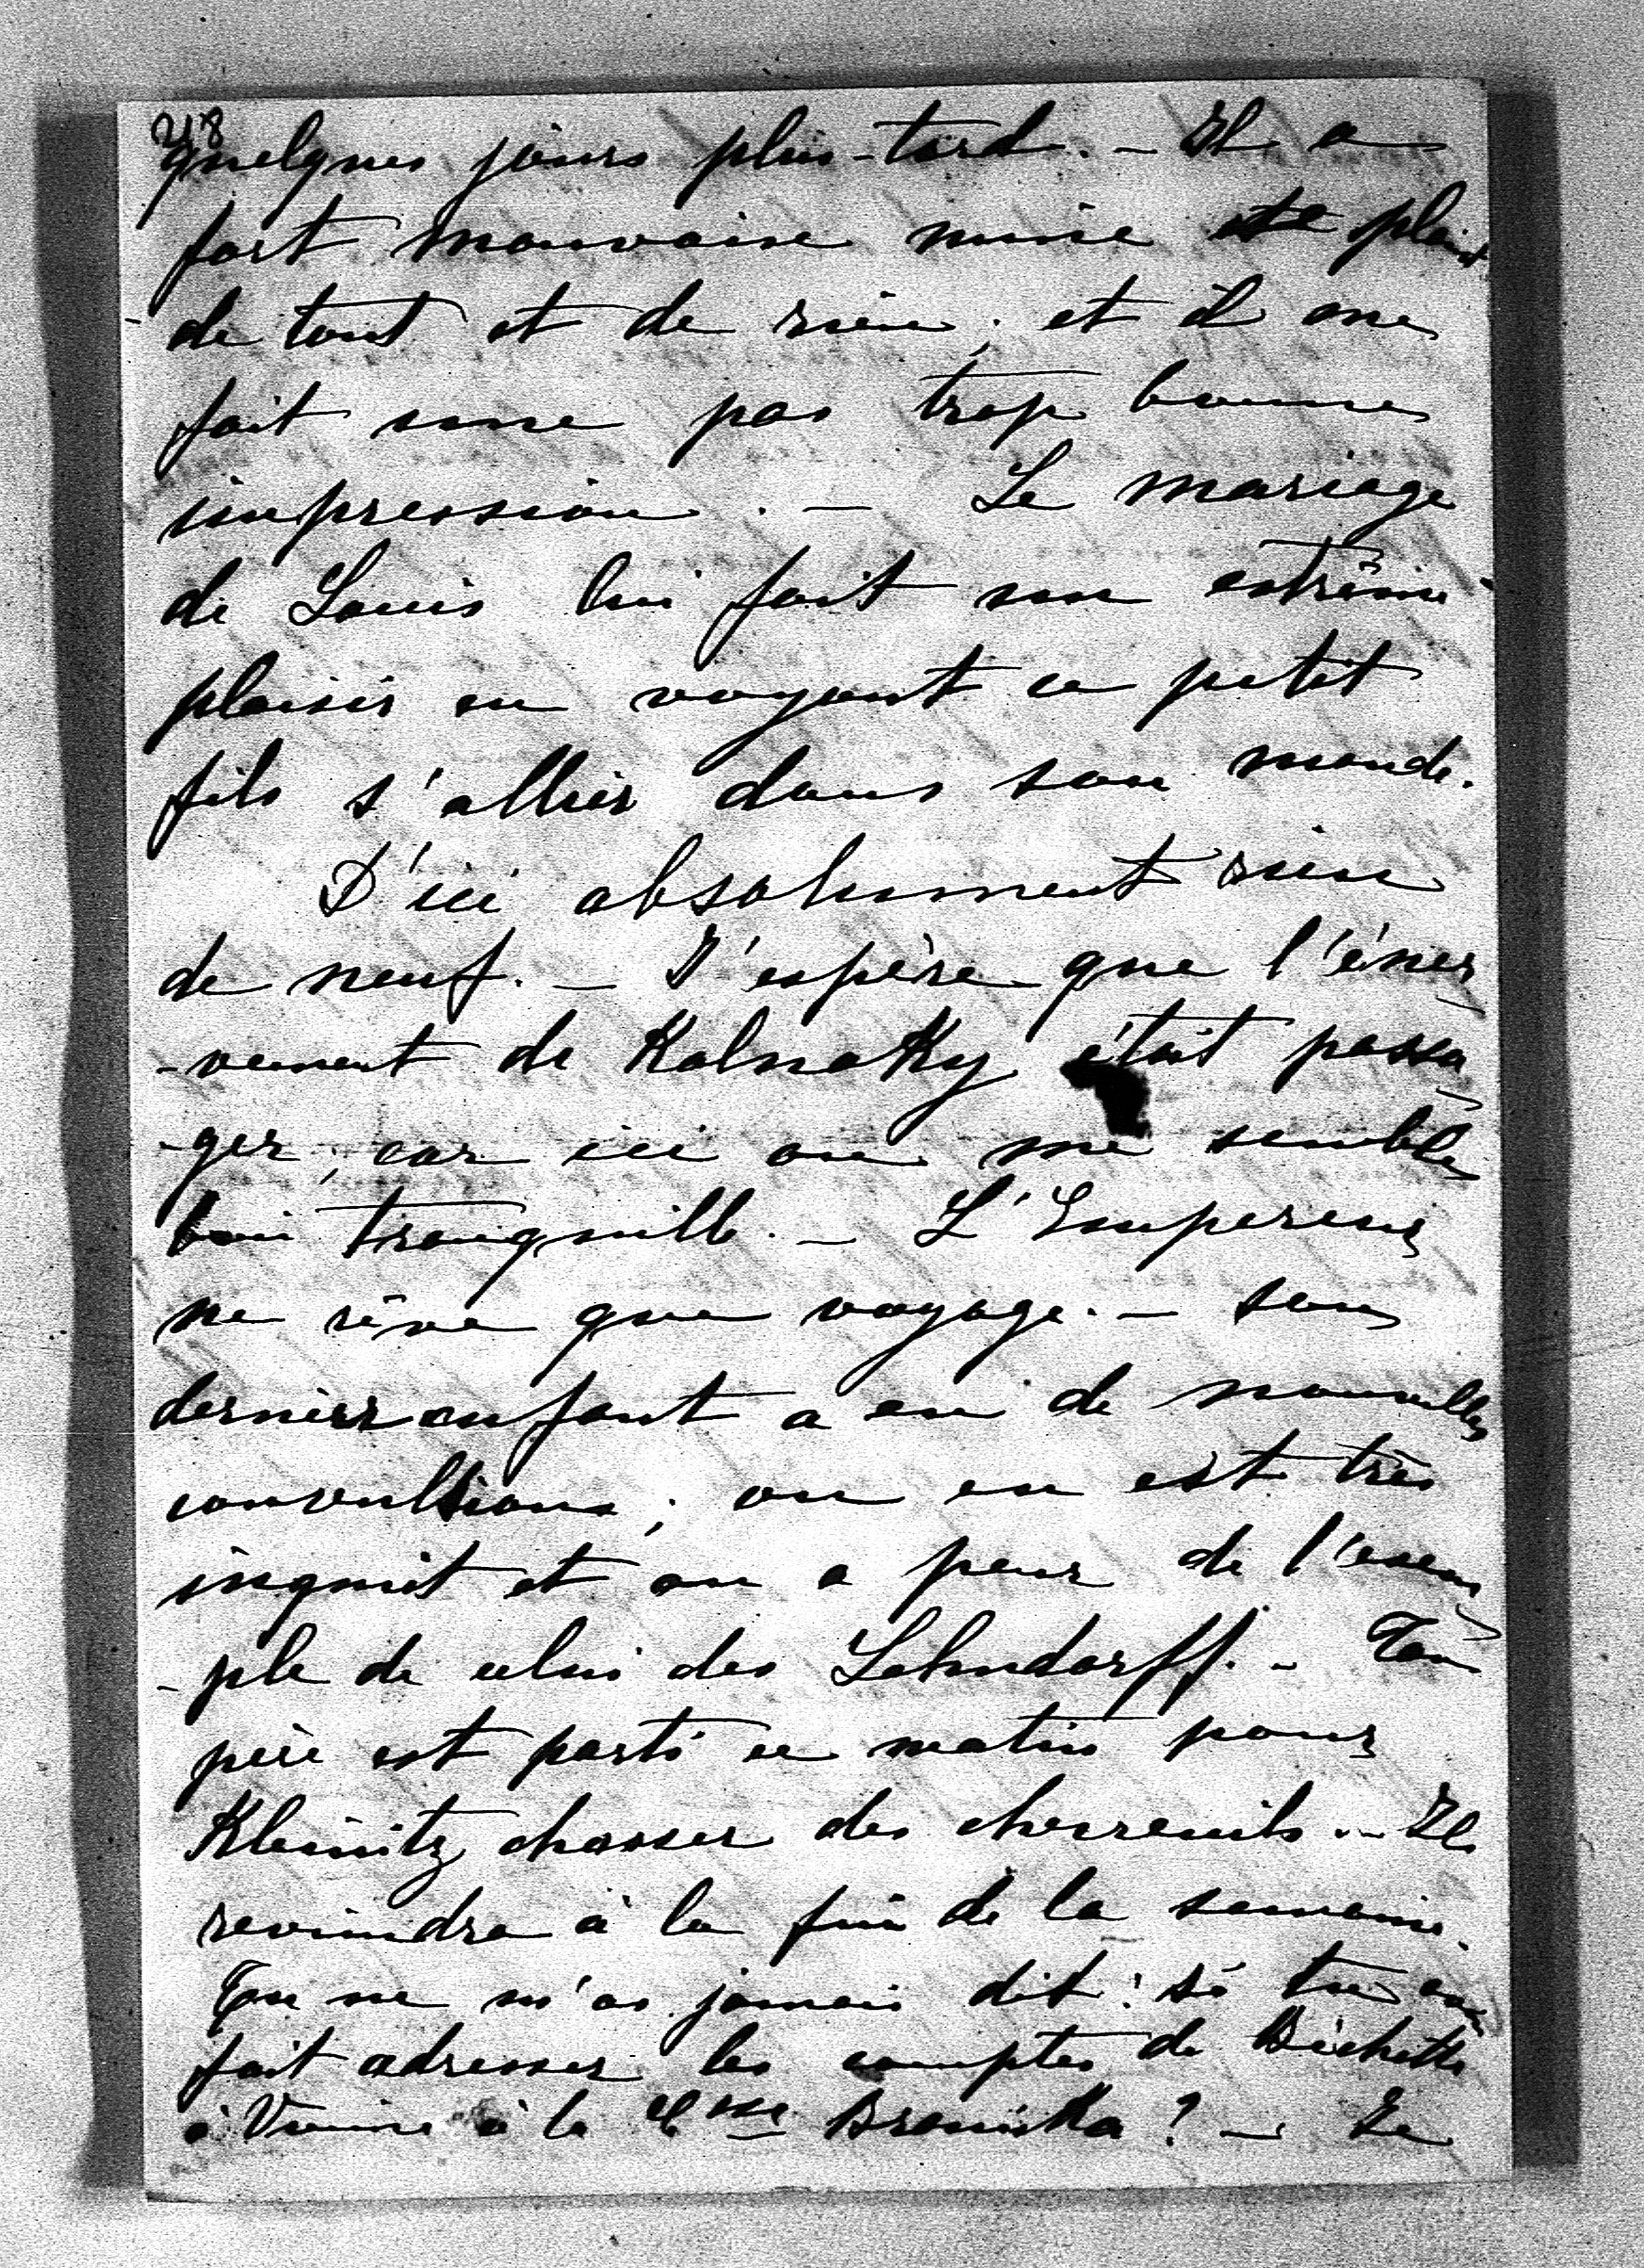 218
quelques jours plus-tard. - Il a
fort mauvaise mine et se plaint
de tout et de rien; et il me
fait une pas trop bonne
impression. - Le mariage
de Louis lui fait un extrême
plaisir en voyant ce petit
fils s'allier dans son monde.
D'ici absolument rien
de neuf. - J'espère que l'éner
-vement de Kalnoky était passa
-ger, car ici on me semble
bien tranquille. - L'Empereur
ne rêve que voyage. - son
dernier enfant a eu de nouvelles
convulsions; on en est très
inquiet et on a peur de l'exem
-ple de celui des Lehndorff. - Ton
père est parti ce matin pour
Kleinitz chasser des chevreuils. - Il
reviendra à la fin de la semaine.
Tu ne m'as jamais dit: si tu
fait adresser les comptes de Bichette
à Vienne à la Csse Branicka? - Le